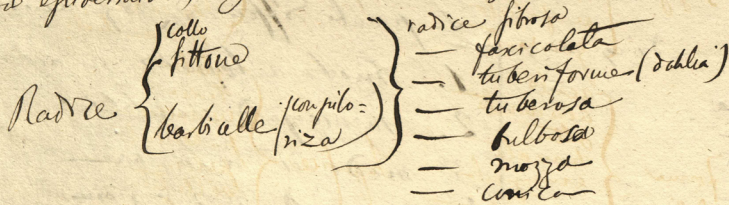 Radice
collo
fittone
barbicelle (con pilo=
riza)
radice fibrosa
— fascicolata
— tuberiforme (dahlia)
— tuberosa
— bulbosa
— mozza
— conica